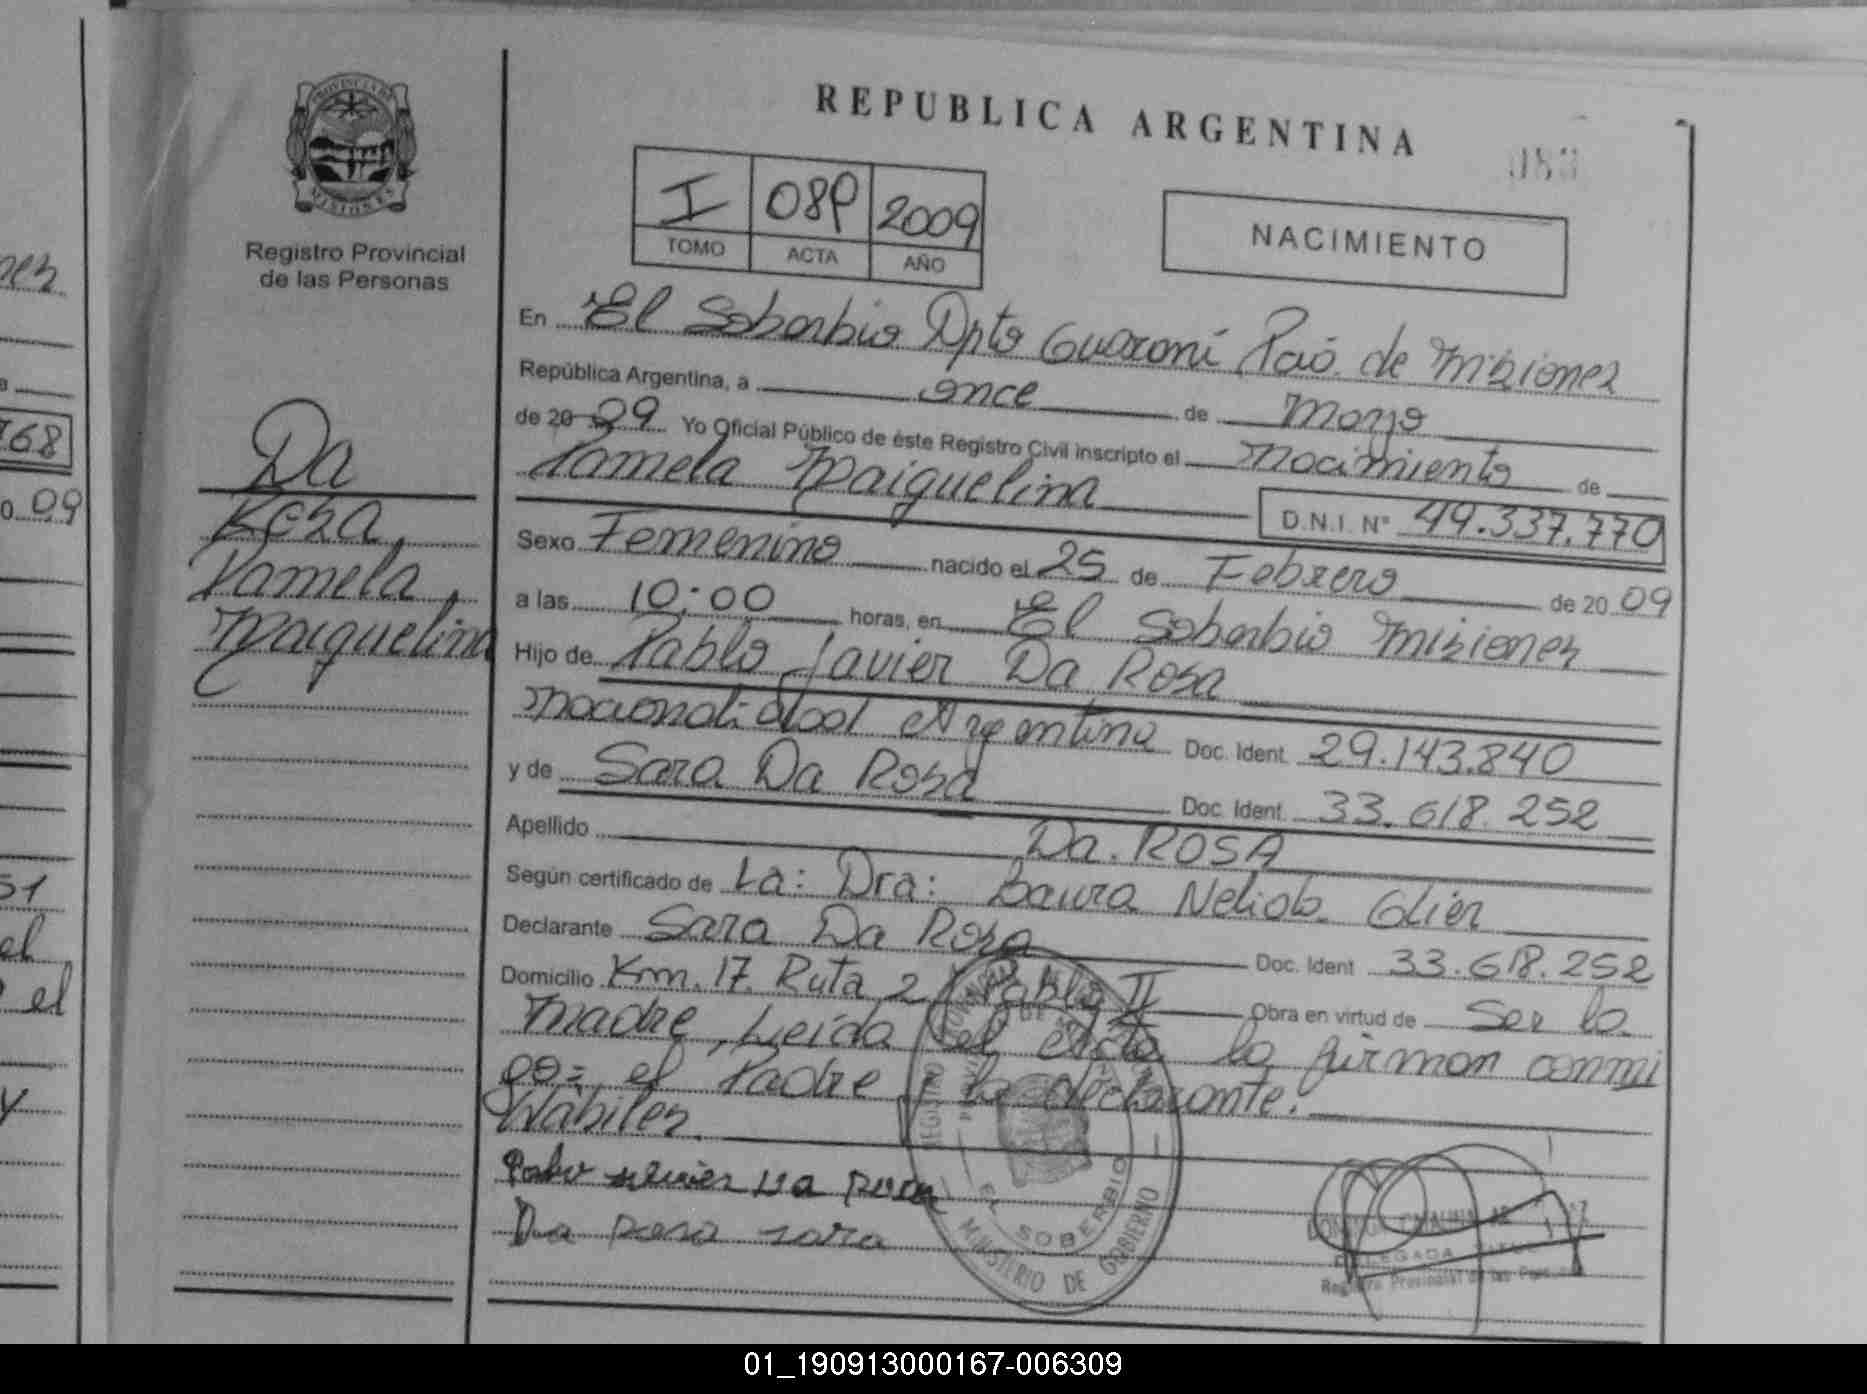 PROVINCIA DE
MISIONES
Registro Provincial
de las Personas
REPUBLICA ARGENTINA
083
I 089 2009
TOMO ACTA AÑO
NACIMIENTO
En El Soberbio Dpto Guaraní Pcia. de Misiones
República Argentina, a once de Mayo
de 20 09 Yo Oficial Público de éste Registro Civil inscripto el Nacimiento de
Pamela Maiquelina D.N.I. N° 49.337.770
Sexo Femenino nacido el 25 de Febrero de 20 09
a las 10:00 horas, en El Soberbio Misiones
Hijo de Pablo Javier Da Rosa
Nacionalidad Argentina Doc. Ident. 29.143.840
y de Sara Da Rosa Doc. Ident. 33.618.252
Apellido Da. ROSA
Según certificado de La: Dra: Laura Nelida Glier
Declarante Sara Da Rosa Doc. Ident 33.618.252
Domicilio Km. 17. Ruta 2 Pablo II Obra en virtud de Ser la
Madre, Leída el Acta la firman conmi
go= el Padre y la declarante.
Wábiles.
Pablo Javier Da Rosa
Da Rosa Sara
Da
Rosa,
Pamela,
Maiquelina
EL SOBERBIO
MINISTERIO DE GOBIERNO
DELEGADA
Registro Provincial de las Personas
768
09
51
el
el
y
01_190913000167-006309